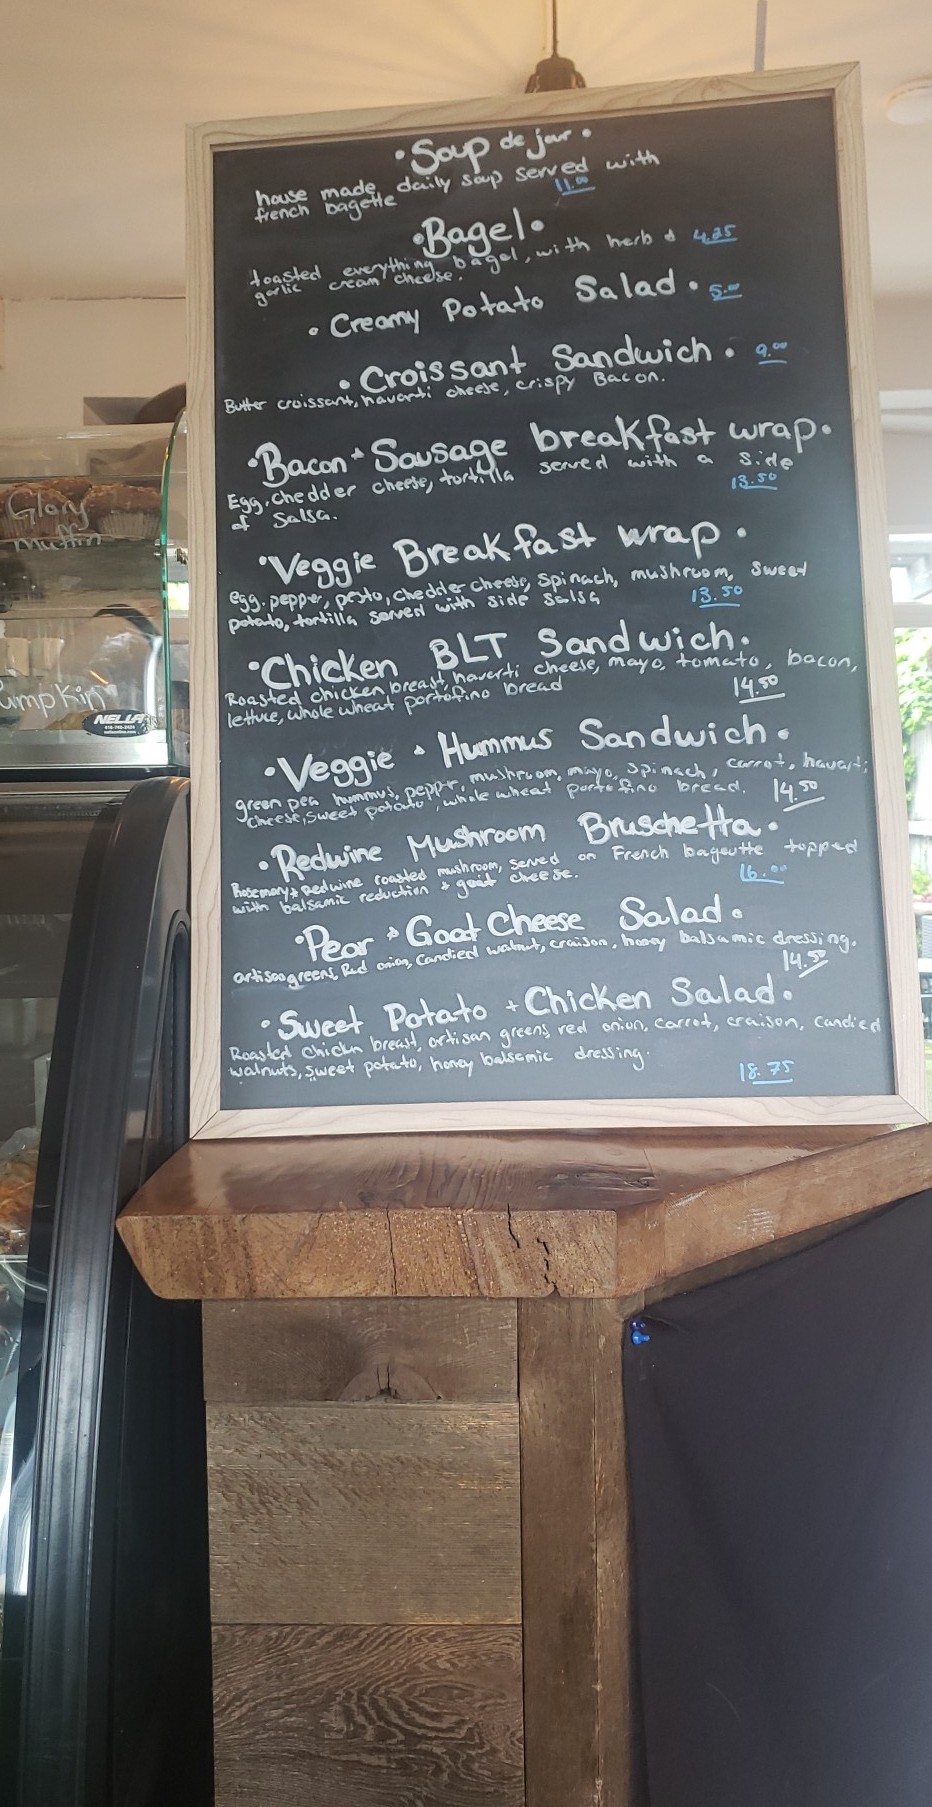 • Soup de jour •
house made daily soup served with
french bagette 11.00
• Bagel •
toasted everything bagel, with herb & 4.25
garlic cream cheese.
• Creamy Potato Salad • 5.00
• Croissant Sandwich • 9.00
Butter croissant, havarti cheese, crispy Bacon.
• Bacon + Sausage breakfast wrap •
Egg, chedder cheese, tortilla served with a side
of Salsa. 13.50
• Veggie Breakfast wrap •
egg, pepper, pesto, chedder cheese, spinach, mushroom, sweet
potato, tortilla served with side salsa 13.50
• Chicken BLT Sandwich •
Roasted chicken breast, havarti cheese, mayo, tomato, bacon,
lettuce, whole wheat portofino bread 14.50
• Veggie + Hummus Sandwich •
green pea hummus, pepper, mushroom, mayo, spinach, carrot, havarti
cheese, sweet potato, whole wheat portofino bread. 14.50
• Redwine Mushroom Bruschetta •
Rosemary + Redwine roasted mushroom, served on French baguette topped
with balsamic reduction + goat cheese. 16.00
• Pear + Goat Cheese Salad •
artisan greens, Red onion, Candied walnut, craison, honey balsamic dressing.
14.50
• Sweet Potato + Chicken Salad •
Roasted chickn breast, artisan greens, red onion, carrot, craison, candied
walnuts, sweet potato, honey balsamic dressing.
18.75
Glory
muffin
umpkin
NELLA